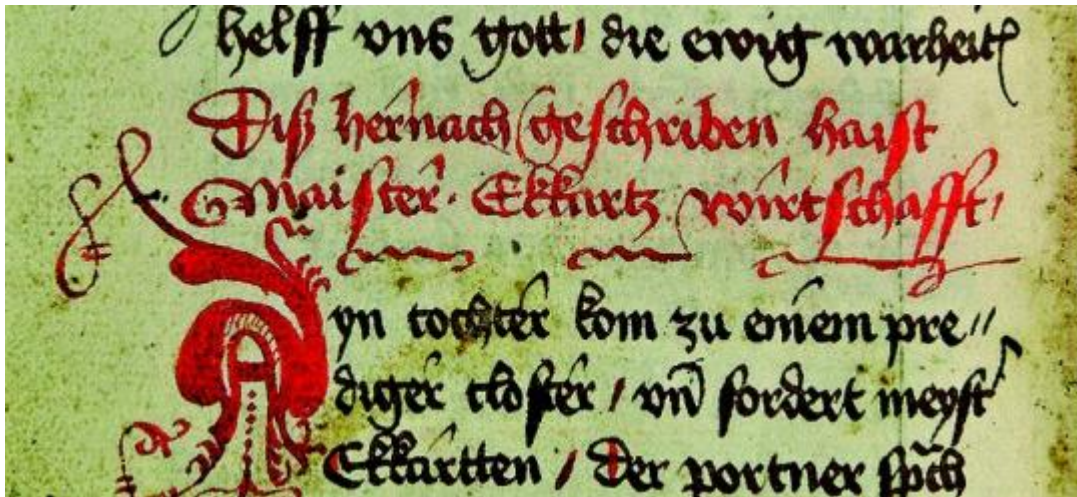 helff vns gott / die ewig warheit
Diß hernach geschriben haist
Maister · Ekkartz wirtschafft /
Ayn tochter kom zu einem pre//
diger closter / vn̄ fordert meystʳ
Ekkartten / der portner sp̄ch